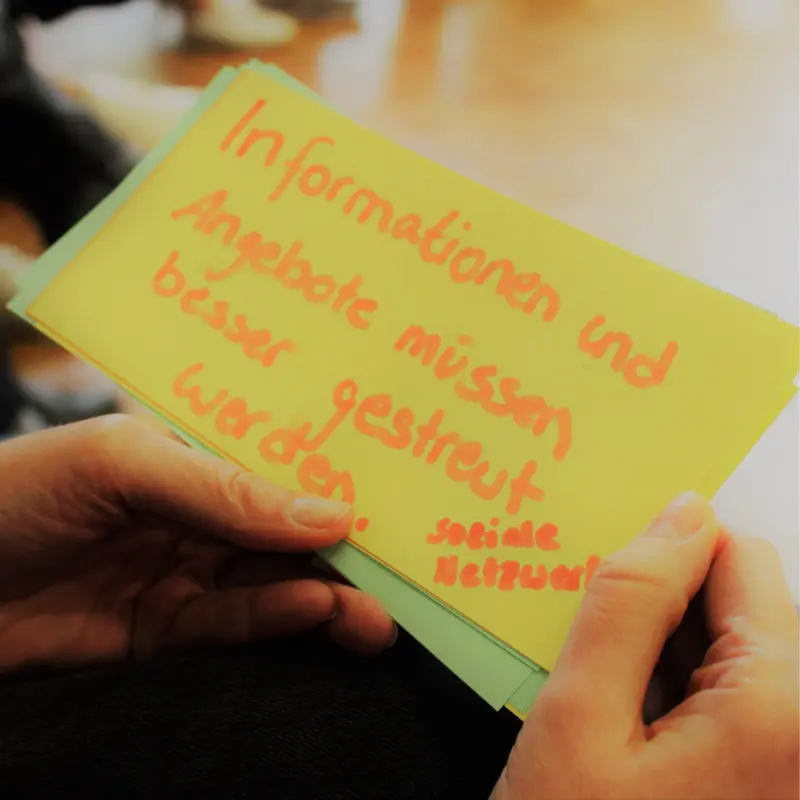 Informationen und
Angebote müssen
besser gestreut
werden.
soziale
Netzwerk